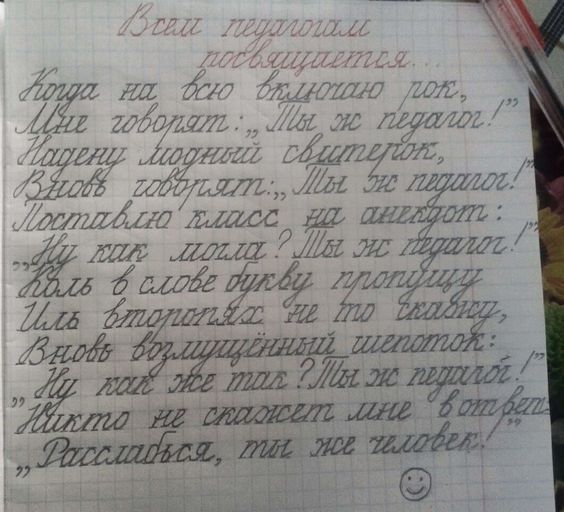 Всем педагогам
посвящается...
Когда на всю включаю рок,
Мне говорят: „Ты ж педагог!”
Надену модный свитерок,
Вновь говорят: „Ты ж педагог!”
Поставлю класс на анекдот:
„Ну как могла? Ты ж педагог!”
Коль в слове букву пропущу
Иль второпях не то скажу,
Вновь возмущённый шепоток:
„Ну как же так? Ты ж педагог!”
Никто не скажет мне в ответ:
„Расслабься, ты же человек!”